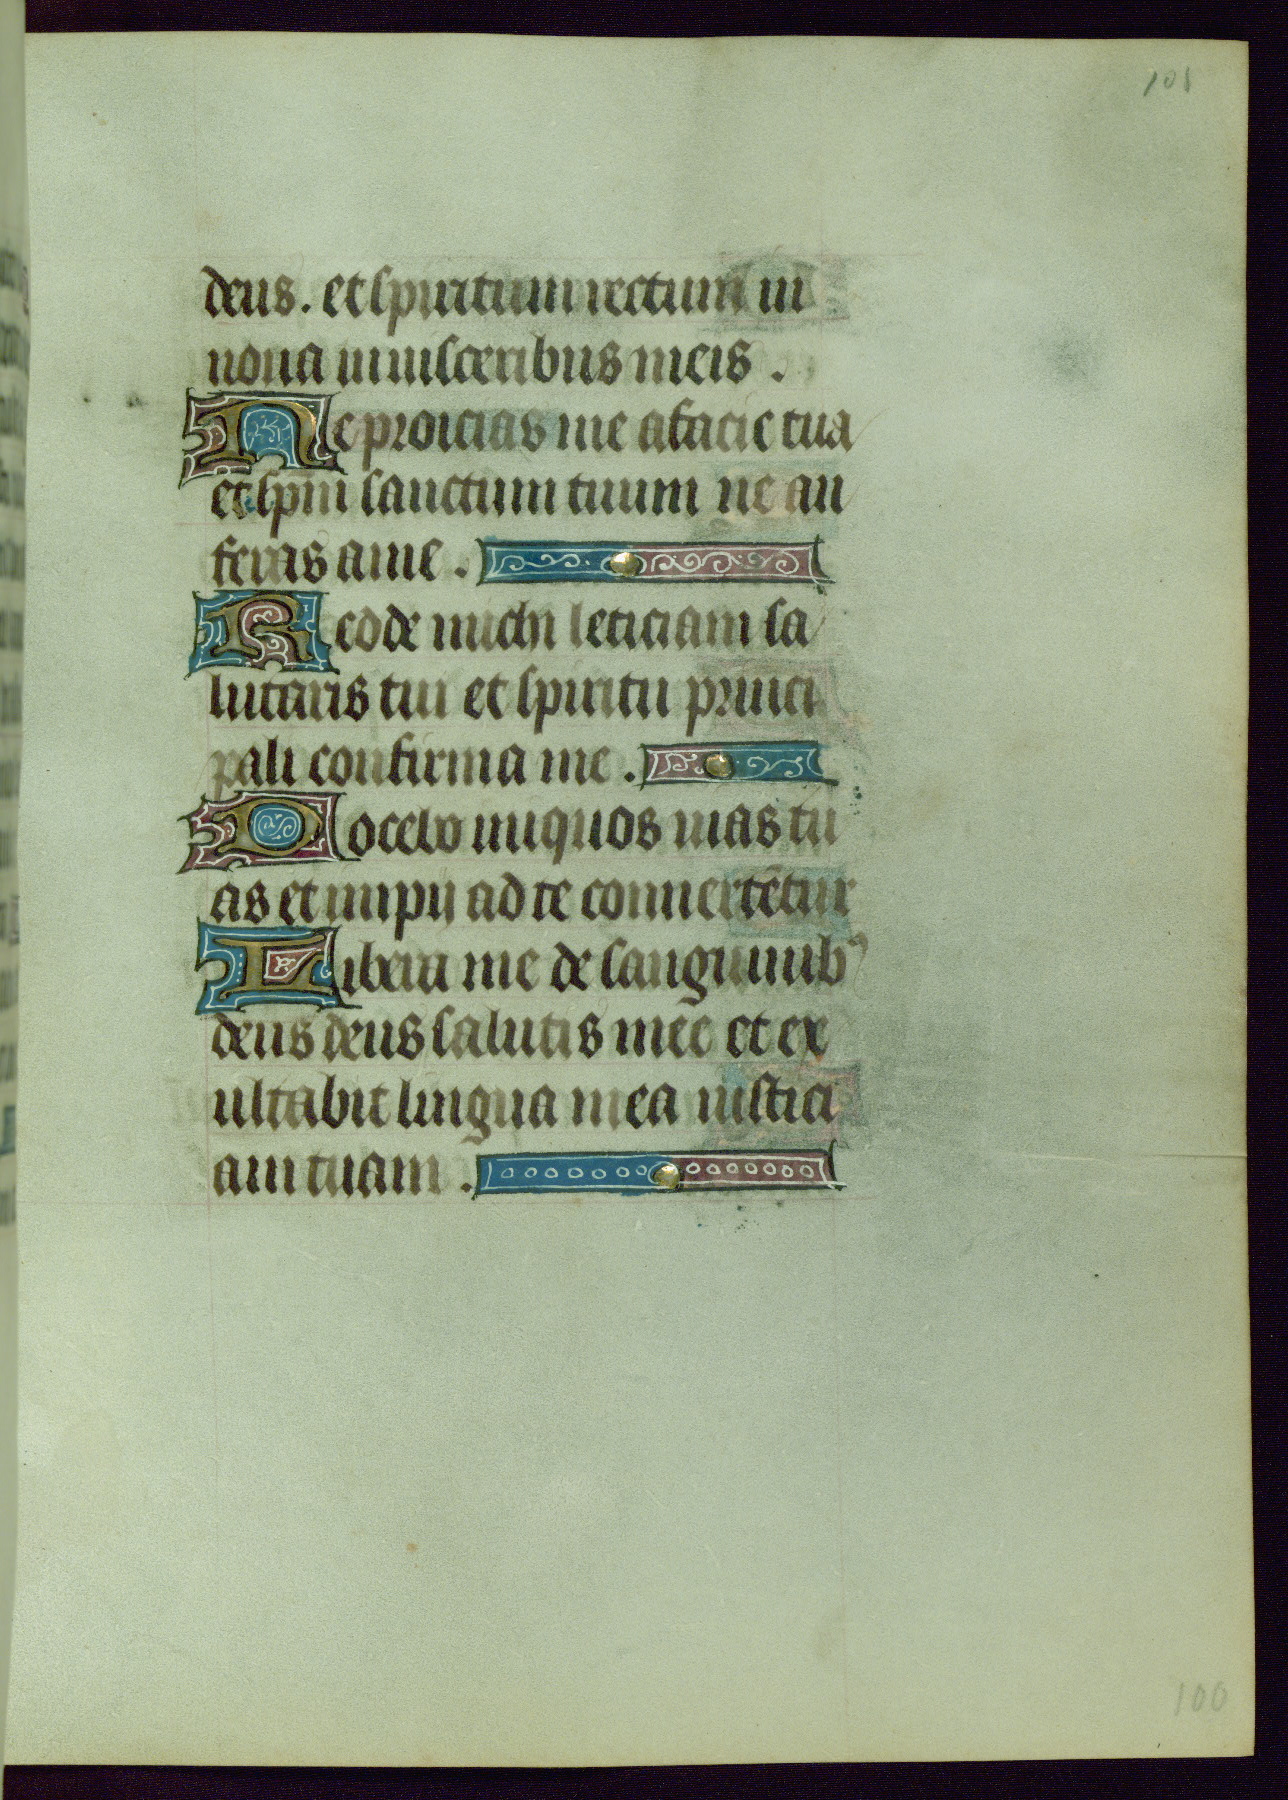 101
deus. et spiritum rectum in
noua in uisceribus meis.
Ne proicias me a facie tua
et spm̄ sanctum tuum ne au
feras a me.
Redde michi leticiam sa
lutaris tui et spiritu princi
pali confirma me.
Docebo iniquos uias tu
as et impij ad te conuertētur
Libera me de sanguinibꝰ
deus deus salutis mee et ex
ultabit lingua mea iustici
am tuam.
100